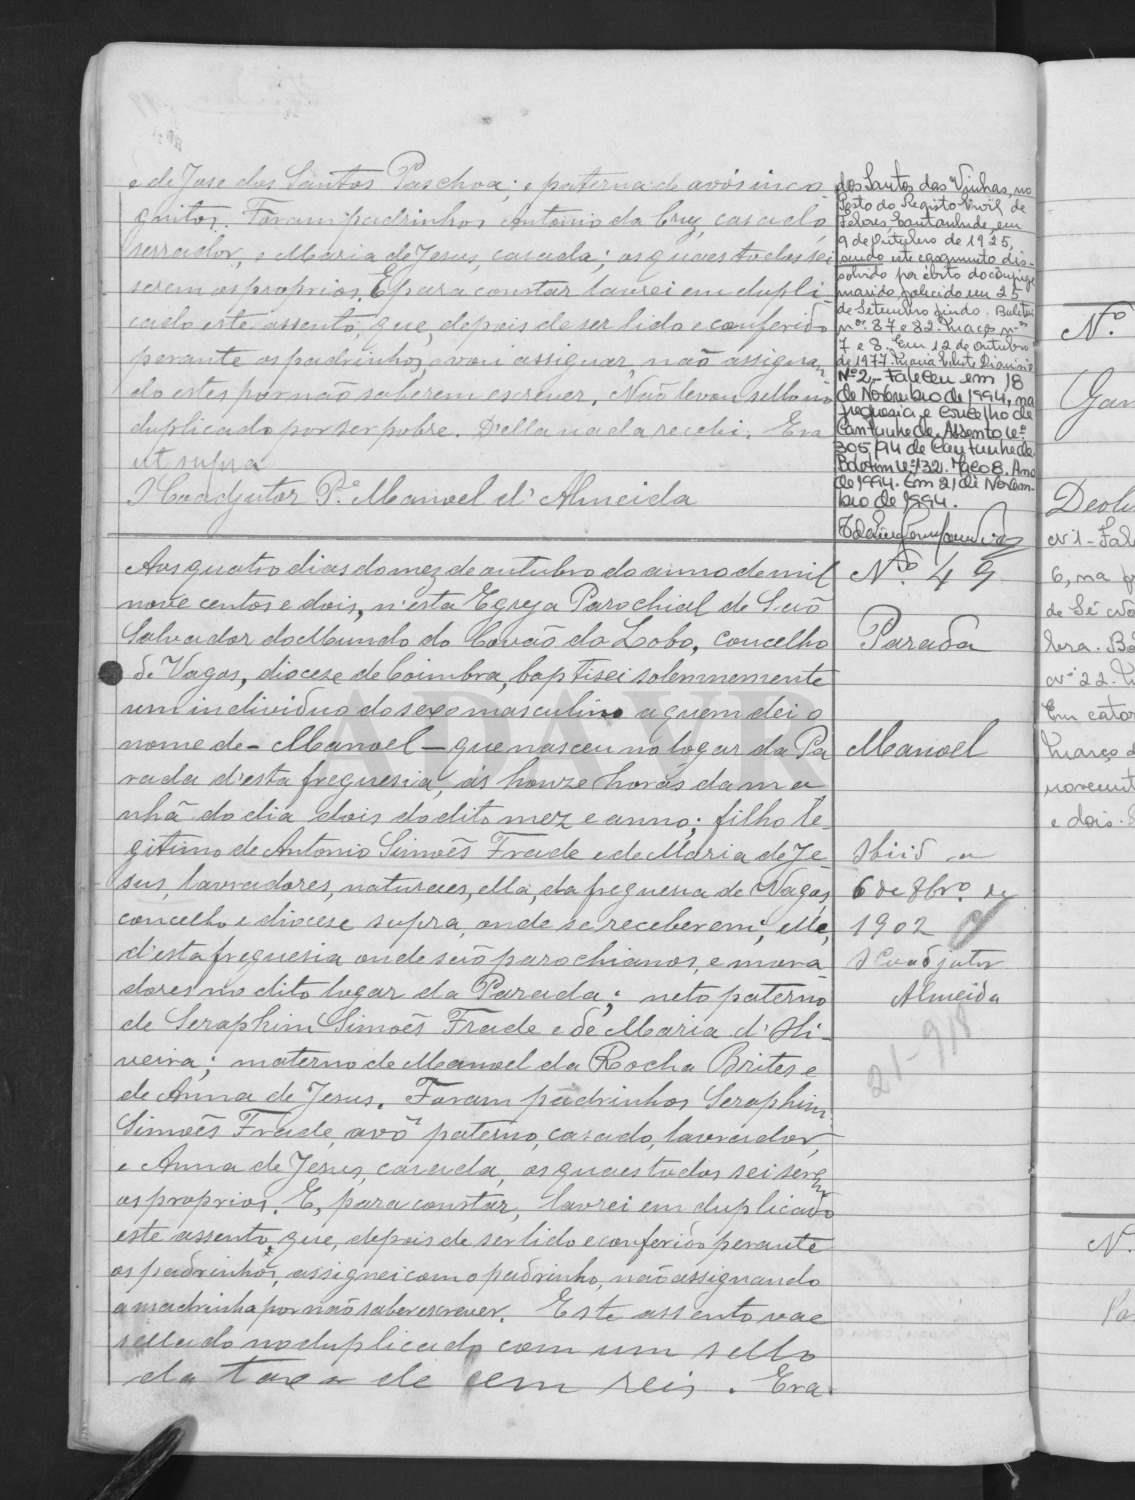 e de Jose dos Santos Paschoa; e paterna de avós inco
gnitos. Foram padrinhos Antonio da Cruz, casado,
serrador, e Maria de Jesus, casada; os quaes todos sei
serem os proprios. E para constar lavrei em dupli-
cado este assento, que, depois de ser lido e conferido
perante os padrinhos, vou assignar, não assignan-
do estes por não saberem escrever. Não levou sello no
duplicado por ser pobre. D'ella nada recebi. Era
ut supra
O Coadjutor P.e Manoel d'Almeida
dos Santos das Vinhas, no
Posto do Registo Civil de
Febres, Cantanhede, em
9 de Outubro de 1925,
sendo este casamento dis-
solvido por óbito do cônjuge
marido falecido em 25
de Setembro findo. Boletins
n.os 87 e 82. Maços n.os
7 e 8. Em 12 de Outubro
de 1977.
Nº 2 - Faleceu em 18
de Novembro de 1994, na
freguesia e concelho de
Cantanhede. Assento nº
305/94 de Cantanhede.
Boletim nº 132. Maço 8. Ano
de 1994. Em 21 de Novem-
bro de 1994.
Aos quatro dias do mez de outubro do anno de mil
nove centos e dois, n'esta Egreja Parochial de São
Salvador do Mundo do Covão do Lobo, concelho
de Vagos, diocese de Coimbra, baptisei solemnemente
um individuo do sexo masculino a quem dei o
nome de - Manoel - que nasceu no logar da Pa
rada d'esta freguesia, ás honze horas da ma
nhã do dia dois do dito mez e anno; filho le-
gitimo de Antonio Simoẽs Frade e de Maria de Je-
sus, lavradores, naturaes, ella, da freguesia de Vagos,
concelho e diocese supra, onde se receberem; elle,
d'esta freguesia onde são parochianos, e mora-
dores no dito logar da Parada; neto paterno
de Seraphim Simoẽs Frade e de Maria d'Oli-
veira; materno de Manoel da Rocha Brites e
de Anna de Jesus. Foram padrinhos Seraphim
Simoẽs Frade, avô paterno, casado, lavrador,
e Anna de Jesus, casada, os quaes todos sei serem
os proprios. E, para constar, lavrei em duplicado
este assento, que, depois de ser lido e conferido perante
os padrinhos, assignei com o padrinho, não assignando
a madrinha por não saber escrever. Este assento vae
sellado no duplicado com um sello
da taxa de cem reis. Era
Nº 49
Parada
Manoel
6 de 8br.o de
1902
O Coadjutor
Almeida
21-918
ADAVR
Nº
Gan
nº 1 - Fale
6, na f
de Sé
nº 22.
Em cator
Março d
novecent
e dois.
N.
Pa